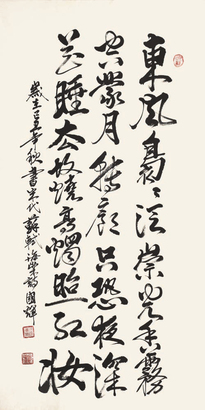 東風裊〻泛崇光香霧
空蒙月轉廊只恐夜深
花睡去故燒高燭照紅妝
年秋書宋代蘇軾海棠詩國輝